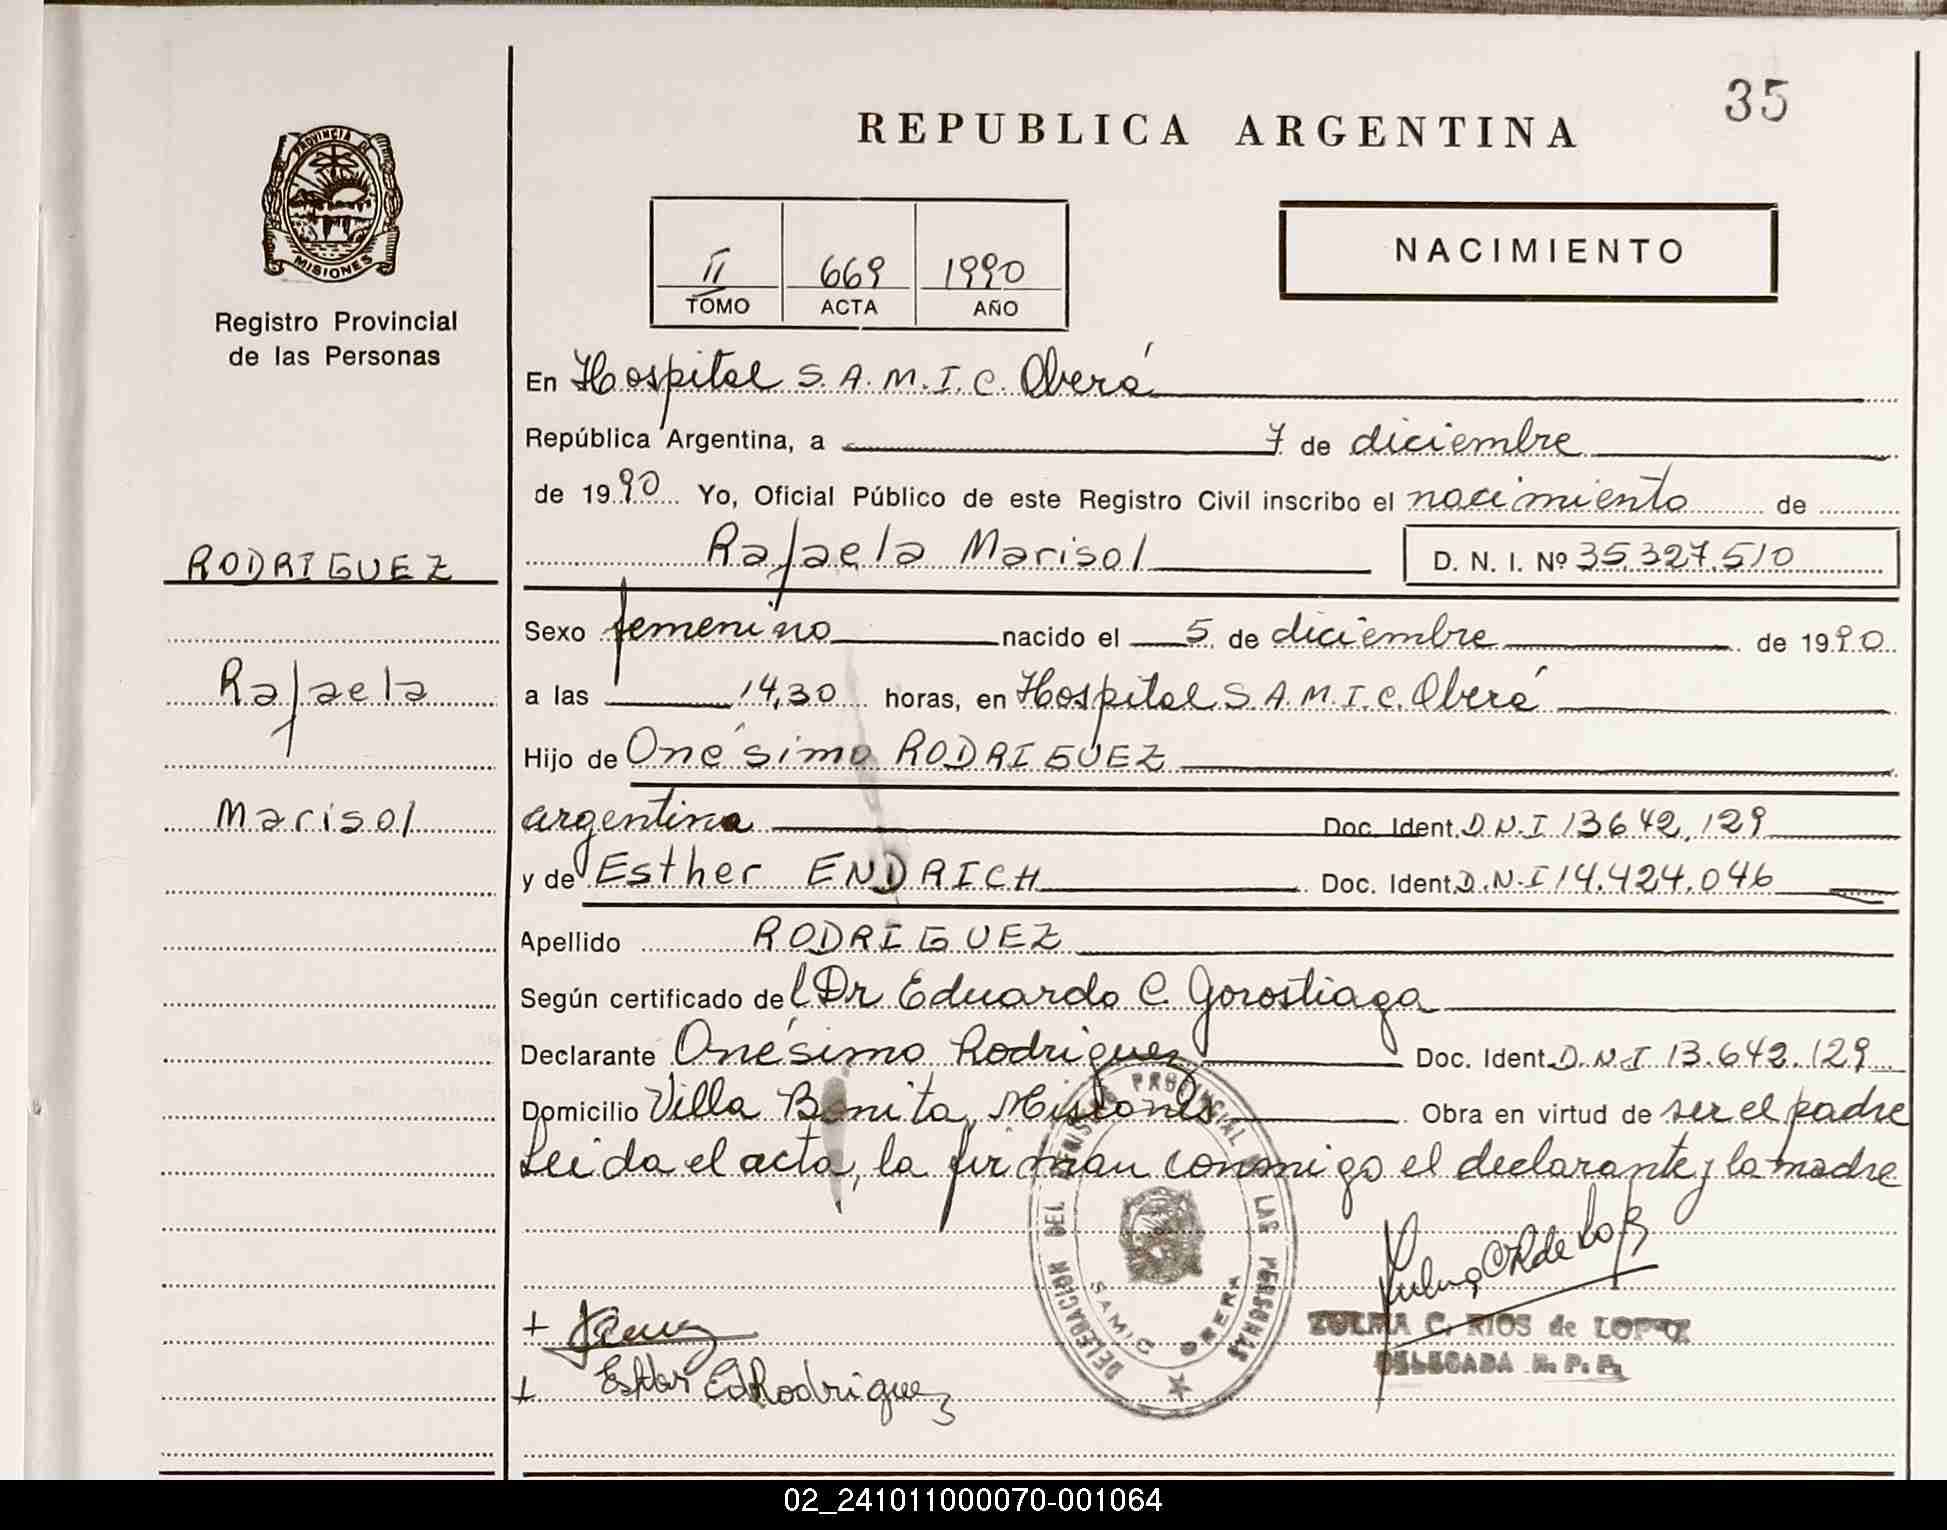 35
REPUBLICA ARGENTINA
PROVINCIA DE
MISIONES
Registro Provincial
de las Personas
II 669 1990
TOMO ACTA AÑO
NACIMIENTO
En Hospital S.A.M.I.C. Oberá
República Argentina, a 7 de diciembre
de 1990 Yo, Oficial Público de este Registro Civil inscribo el nacimiento de
Rafaela Marisol D. N. I. Nº 35.327.510
RODRIGUEZ
Rafaela
Marisol
Sexo femenino nacido el 5 de diciembre de 1990
a las 14,30 horas, en Hospital S.A.M.I.C. Oberá
Hijo de Onésimo RODRIGUEZ
argentina Doc. Ident. D.N.I 13642.129
y de Esther ENDRICH Doc. Ident. D.N.I 14.424.046
Apellido RODRIGUEZ
Según certificado del Dr Eduardo C. Gorostiaga
Declarante Onésimo Rodriguez Doc. Ident. D.N.I 13.642.129
Domicilio Villa Bonita, Misiones Obra en virtud de ser el padre
Leida el acta, la firman conmigo el declarante y la madre
DELEGACION DEL REGISTRO PROVINCIAL DE LAS PERSONAS
SAMIC OBERA
ZULMA C. RIOS de LOPEZ
DELEGADA R. P. P.
+
+ Esther Ed Rodriguez
02_241011000070-001064